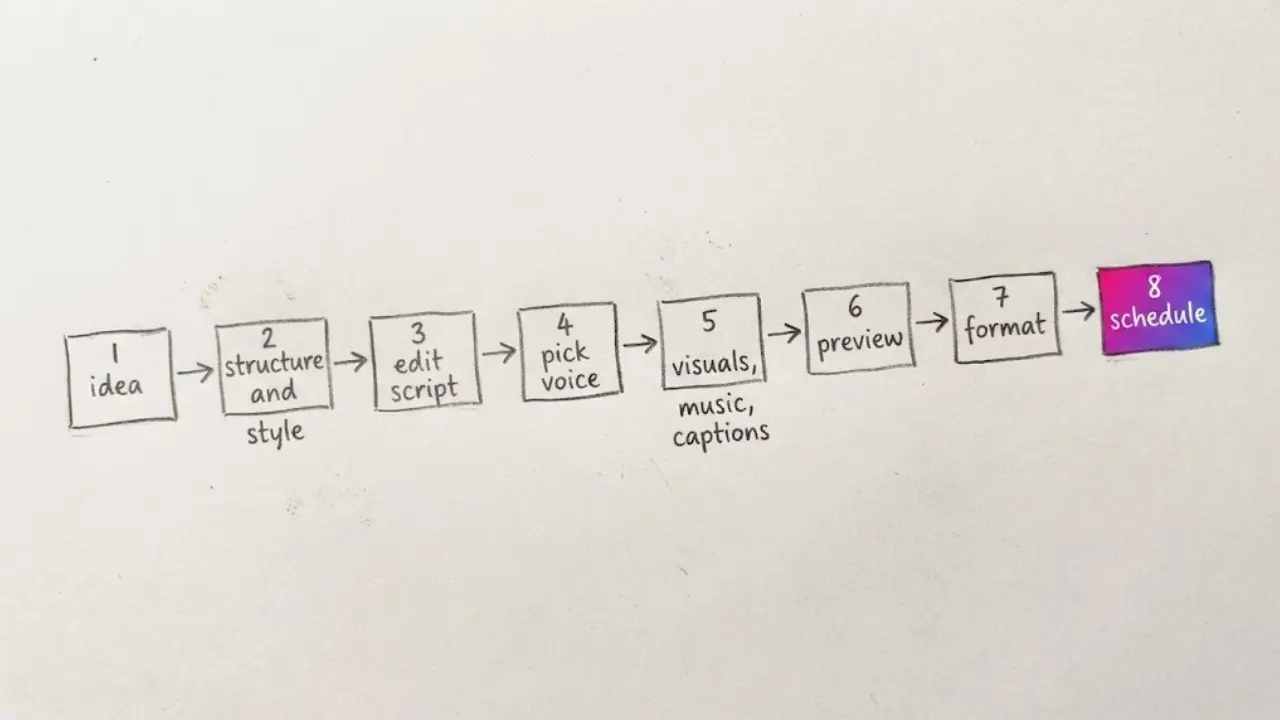 1
idea
2
structure
and
style
3
edit
script
4
pick
voice
5
visuals,
music,
captions
6
preview
7
format
8
schedule